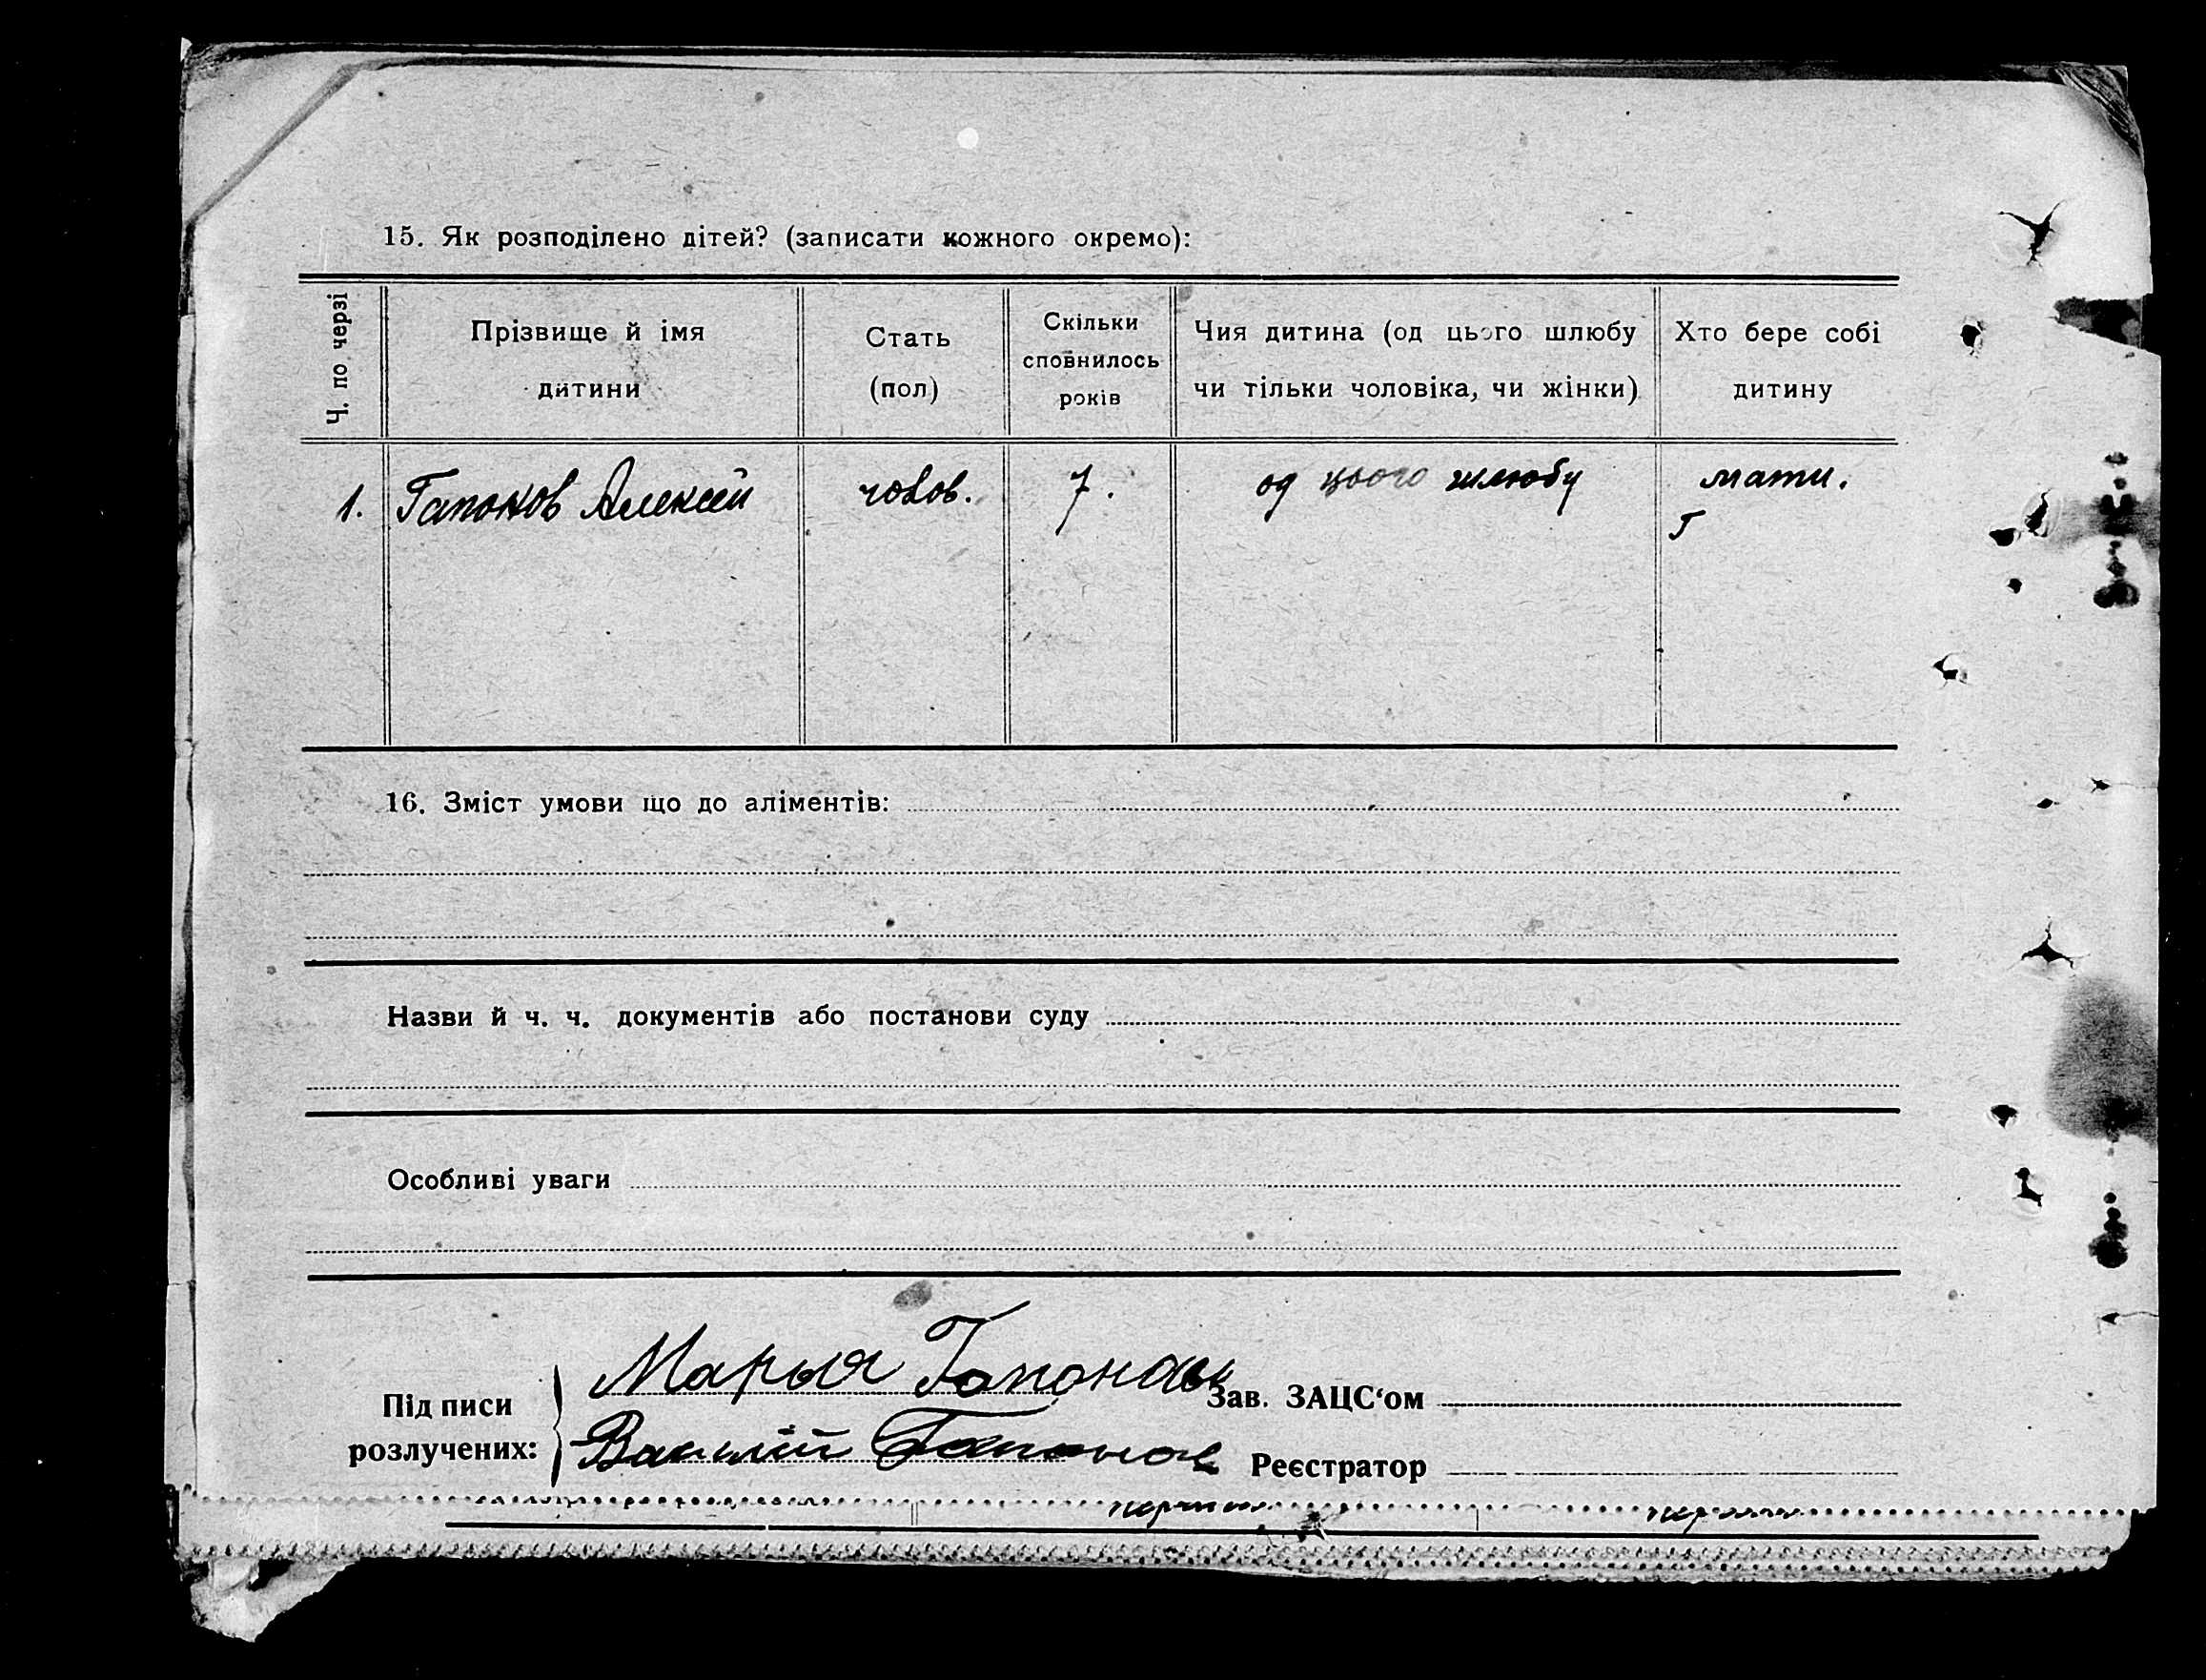 15. Як розподілено дітей? (записати кожного окремо):
Ч. по черзі
Прізвище й імя
дитини
Стать
(пол)
Скільки
сповнилось
років
Чия дитина (од цього шлюбу
чи тільки чоловіка, чи жінки)
Хто бере собі
дитину
1. Гапонов Алексей чолов. 7. од цього шлюбу мати.
16. Зміст умови що до аліментів:
Назви й ч. ч. документів або постанови суду
Особливі уваги
Підписи
розлучених:
Марья
Зав. ЗАЦС‘ом
Василий Гапонов
Реєстратор